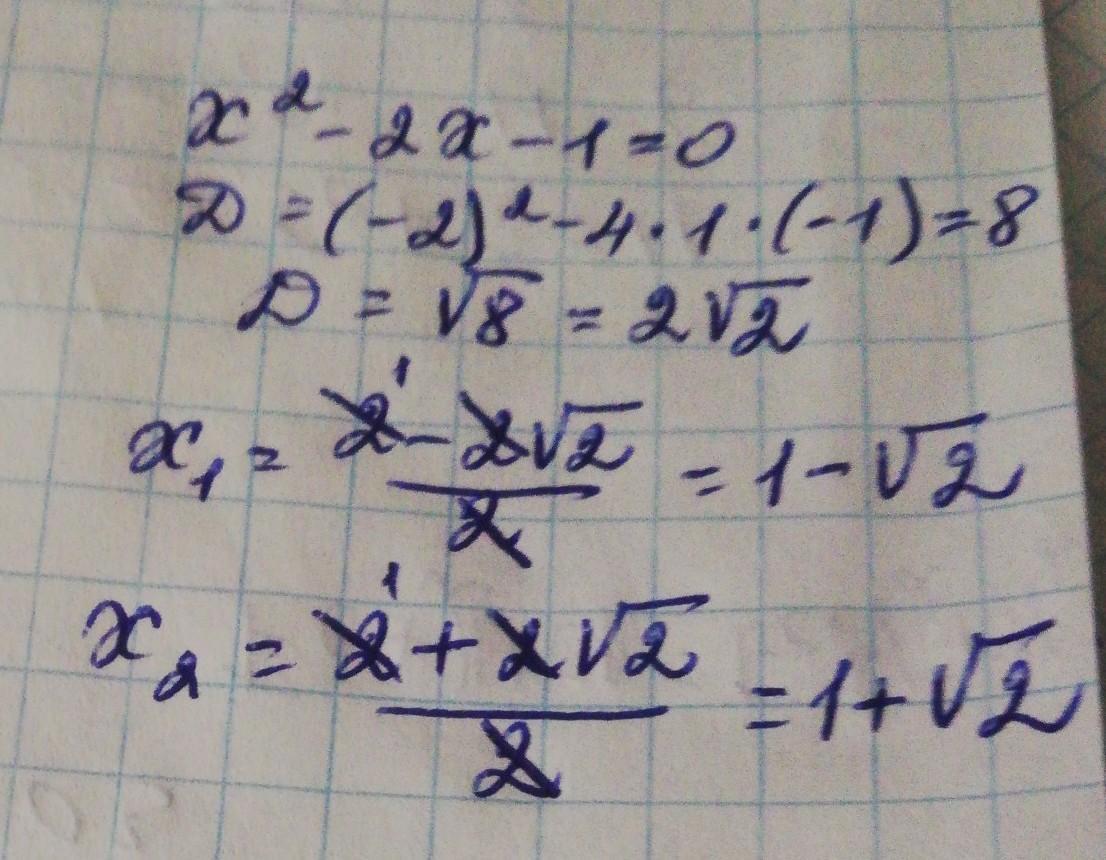 x² - 2x - 1 = 0
D = (-2)² - 4 · 1 · (-1) = 8
D = √8 = 2√2
x₁ = (2¹ - 2√2)/2 = 1 - √2
x₂ = (2¹ + 2√2)/2 = 1 + √2